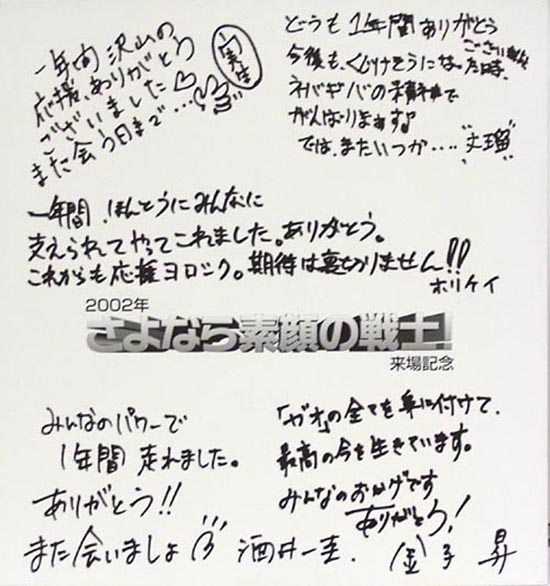 一年間沢山の
応援、ありがとう
ございました♡
また会う日まで…
実生
どうも1年間ありがとう
ございました
今後も、くじけそうになった時、
ネバギバの精神で
がんばりまぁす♪
では、またいつか‥‥"丈瑠"
一年間、ほんとうにみんなに
支えられてやってこれました。ありがとう。
これからも応援ヨロシク。期待は裏切りません!!
ホリケイ
2002年
さよなら素顔の戦士!
来場記念
みんなのパワーで
1年間走れました。
ありがとう!!
また会いましょう 酒井一圭.
「ガオ」の全てを身に付けて、
最高の今を生きています。
みんなのおかげです
ありがとう!
金子昇